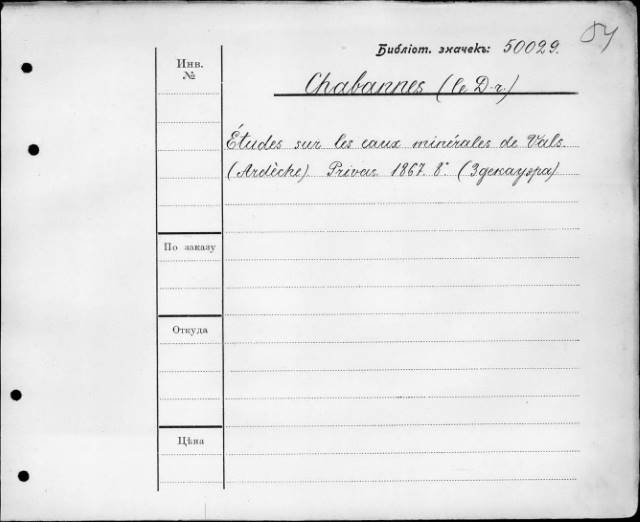 Библіот. значекъ: 50029.
Инв.
№
Chabannes (le D-r.)
Études sur les eaux minérales de Vals.
(Ardèche). Privas. 1867. 8°. (Здекауэра)
По заказу
Откуда
Цѣна